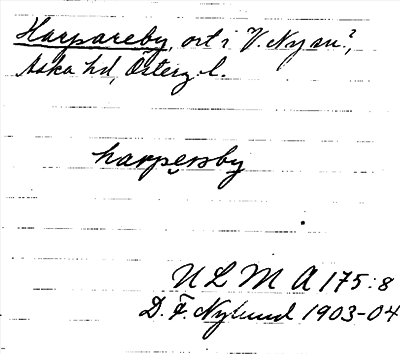 Harpareby, ort i V. Ny sn?,
Aska hd, Österg. l.
harpersby
U L M A 175:8
D. F. Nylund 1903-04